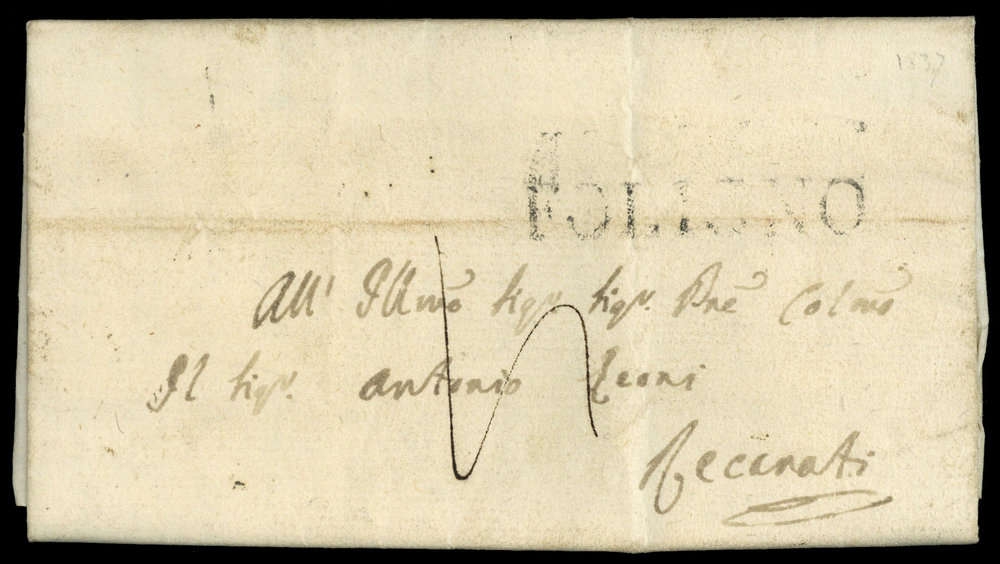 1837
FOLIGNO
All' Illmo Sigr. Sigr. Pne Colmo
Il Sigr. Antonio Leoni
Recanati